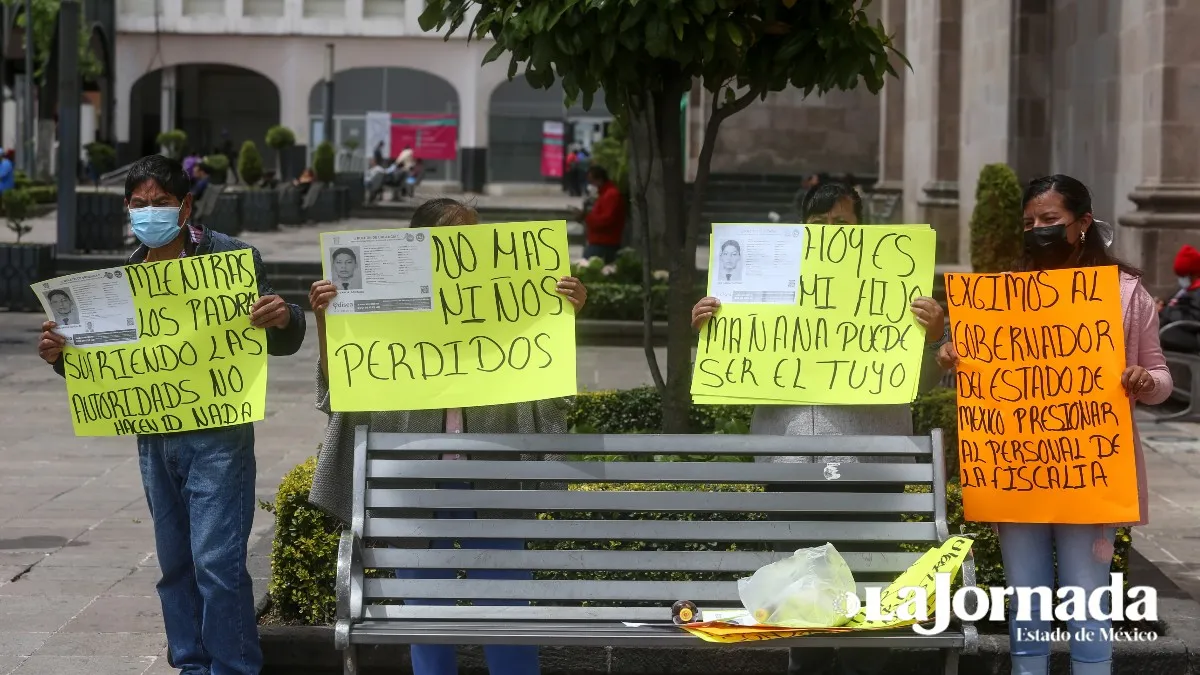 MIENTRAS
LOS PADRE
SUFRIENDO LAS
AUTORIDADS NO
HACEN ID NADA
NO MAS
NIÑOS
PERDIDOS
HOY ES
MI HIJO
MAÑANA PUEDE
SER EL TUYO
EXGIMOS AL
GOBERNADOR
DEL ESTADO DE
MEXICO PRESIONAR
AL PERSONAL DE
LA FISCALIA
La Jornada
Estado de México